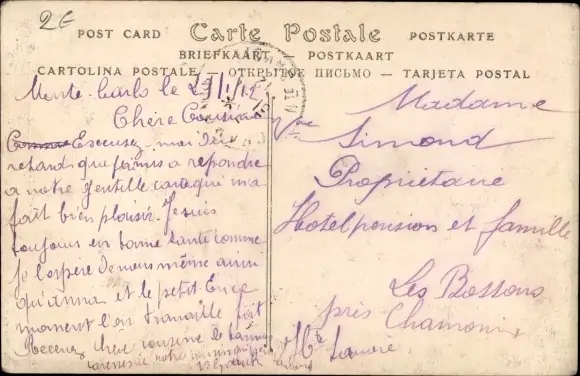 2€
POST CARD Carte Postale POSTKARTE
BRIEFKAART POSTKAART
CARTOLINA POSTALE - ОТКРЫТОЕ ПИСЬМО - TARJETA POSTAL
Monte-Carlo le
Chère Cousine
Excusez-moi du
retard que j'ai mis a repondre
a votre gentille carte qui m'a
fait bien plaisir. Je suis
toujours en bonne santé comme
je l'espère de vous même ainsi
qu'anna et le petit. En ce
moment l'on travaille fort
Recevez chere cousine
Madame
Vve Simond
Propriétaire
Hotel pension et famille
Les Bossons
près Chamonix
Hte Savoie